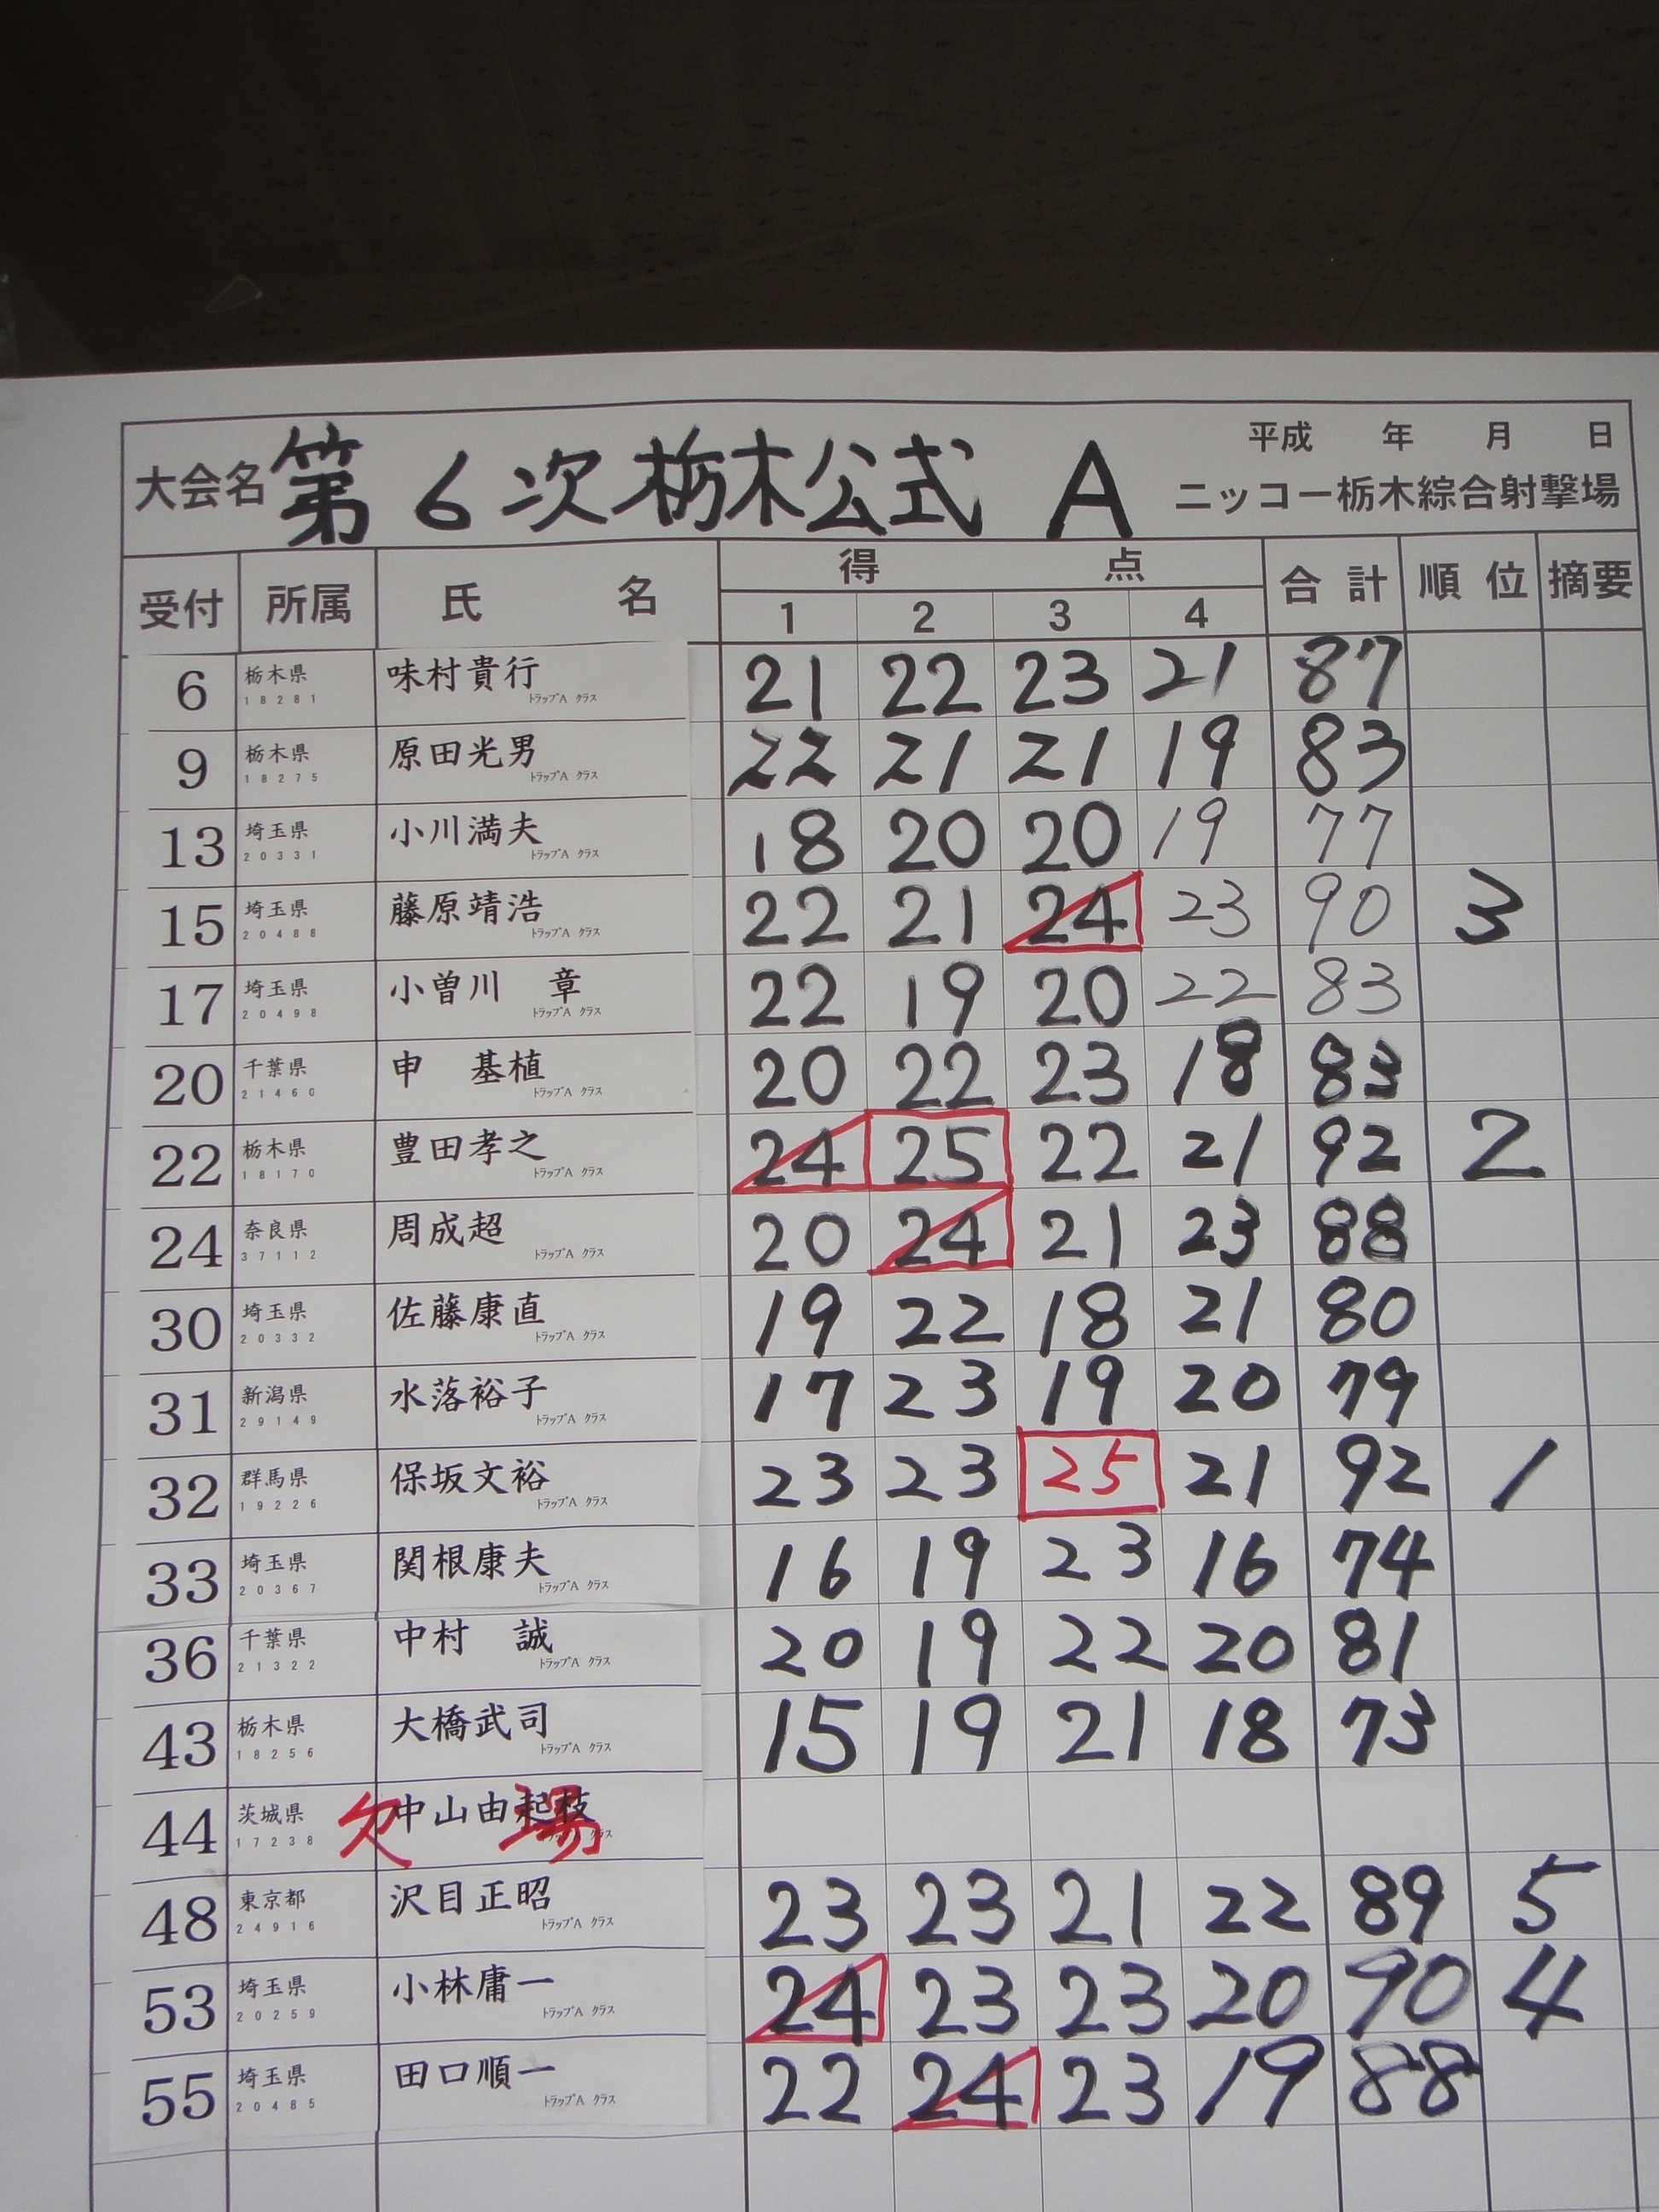 大会名 第6次栃木公式 A 平成 年 月 日
ニッコー栃木綜合射撃場
受付 所属 氏 名 得 点 合計 順位 摘要
1 2 3 4
6 栃木県 味村貴行 21 22 23 21 87
18281 トラップA クラス
9 栃木県 原田光男 22 21 21 19 83
18275 トラップA クラス
13 埼玉県 小川満夫 18 20 20 19 77
20331 トラップA クラス
15 埼玉県 藤原靖浩 22 21 24 23 90 3
20488 トラップA クラス
17 埼玉県 小曽川 章 22 19 20 22 83
20498 トラップA クラス
20 千葉県 申 基植 20 22 23 18 83
21460 トラップA クラス
22 栃木県 豊田孝之 24 25 22 21 92 2
18170 トラップA クラス
24 奈良県 周成超 20 24 21 23 88
37112 トラップA クラス
30 埼玉県 佐藤康直 19 22 18 21 80
20332 トラップA クラス
31 新潟県 水落裕子 17 23 19 20 79
29149 トラップA クラス
32 群馬県 保坂文裕 23 23 25 21 92 1
19226 トラップA クラス
33 埼玉県 関根康夫 16 19 23 16 74
20367 トラップA クラス
36 千葉県 中村 誠 20 19 22 20 81
21322 トラップA クラス
43 栃木県 大橋武司 15 19 21 18 73
18256 トラップA クラス
44 茨城県 中山由起枝 欠場
17238 クラス
48 東京都 沢目正昭 23 23 21 22 89 5
24916 トラップA クラス
53 埼玉県 小林庸一 24 23 23 20 90 4
20259 トラップA クラス
55 埼玉県 田口順一 22 24 23 19 88
20485 トラップA クラス